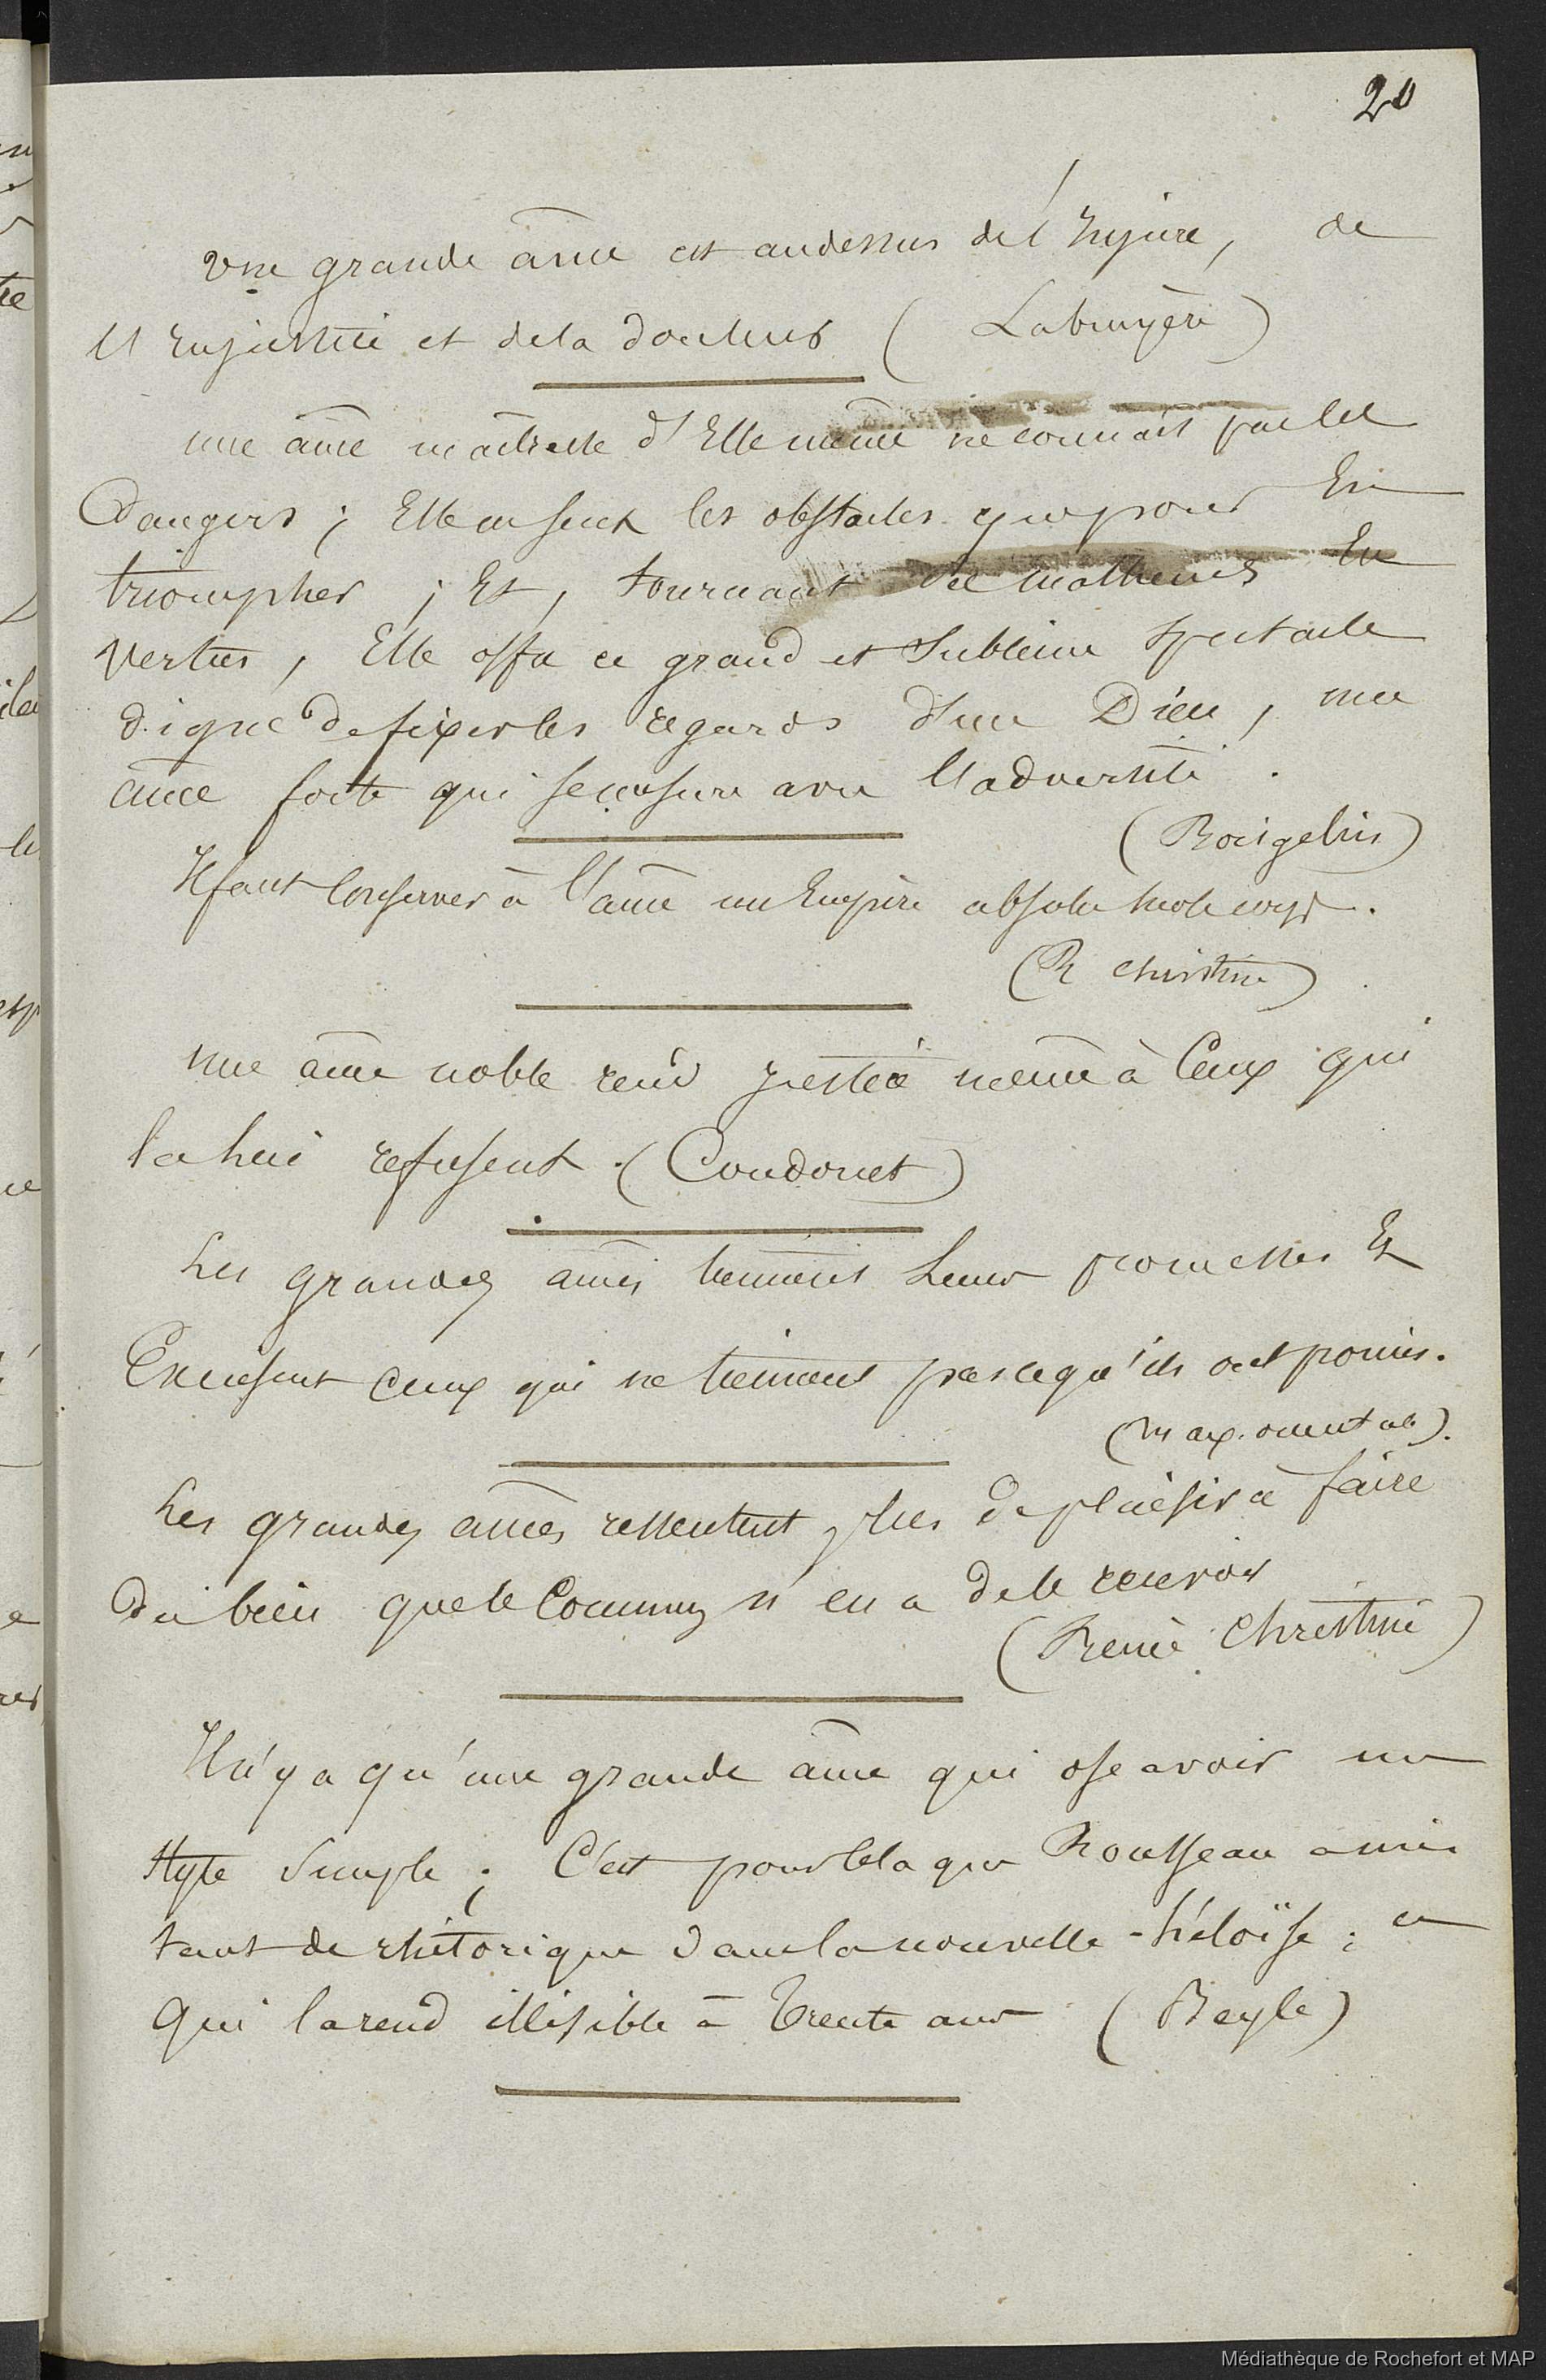 20
Une grande âme est audessus de l'Injure, de
l'Injustice et de la douleur (Labruyère)
une âme maitresse d'Elle même ne connait pas les
Dangers ; Elle ne sent les obstacles que pour En
triompher ; Et, tournant les malheurs En
vertus, Elle offre ce grand et Sublime Spectacle
digne de fixer les regards d'un Dieu, une
âme forte qui se mesure avec l'adversité.
(Boisgelin)
Il faut Conserver à l'âme un Empire absolu sur le corps.
(R christine)
une âme noble rend justice même à Ceux qui
la lui refusent. (Condorcet)
Les grandes âmes tiennent Leurs promesses Et
Excusent ceux qui ne tiennent pas ce qu'ils ont promis.
(Max. orientale).
Les grandes âmes ressentent plus de plaisir à faire
du bien que le Commun n'en a de le recevoir
(Reine Christine)
Il n'y a qu'une grande âme qui ose avoir un
style Simple ; C'est pour Cela que Rousseau a mis
tant de rhétorique dans la nouvelle-héloïse ; ce
qui la rend illisible à Trente ans (Beyle)
Médiathèque de Rochefort et MAP